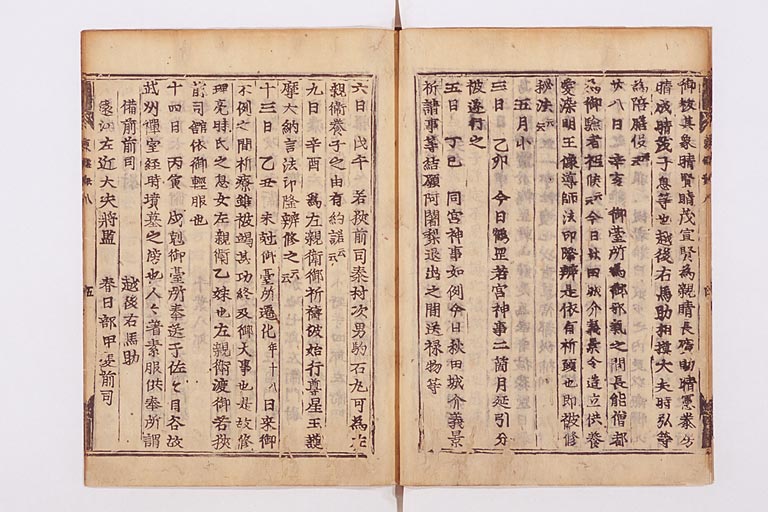 御救其象晴賢晴茂宣賢為親晴長晴助晴憲
晴成晴茂子息等也越後右馬助相撲大夫時弘等
為陪膳役云云
廿八日　辛亥　御臺所為御邪氣之間長能僧都
為御驗者祗候云云今日秋田城介義景令造立供養
愛染明王像導師法印隆辨是依有祈願也即被修
秘法云云
五月小
三日　乙卯　今日鶴岳若宮神事二箇月延引分
被遂行之
五日　丁巳　同宮神事如例今日秋田城介義景
祈請事等結願阿闍梨退出之間送祿物等
六日　戊午　若狹前司泰村次男駒石丸可為左
親衛養子之由有約諾云云
九日　辛酉　為左親衛御祈禱被始行尊星王護
摩大納言法印隆辨修之云云
十三日　乙丑　未尅御臺所遷化年十八日來御
不例之間祈療雖被竭其功終及御大事也是故修
理亮時氏之息女左親衛乙妹也左親衛渡御若狹
前司館依御輕服也
十四日　丙寅　戌尅御臺所奉送于佐々目谷故
武州禪室經時墳墓之傍也人々著素服供奉所謂
備前前司　越後右馬助
遠江左近大夫將監　春日部甲斐前司